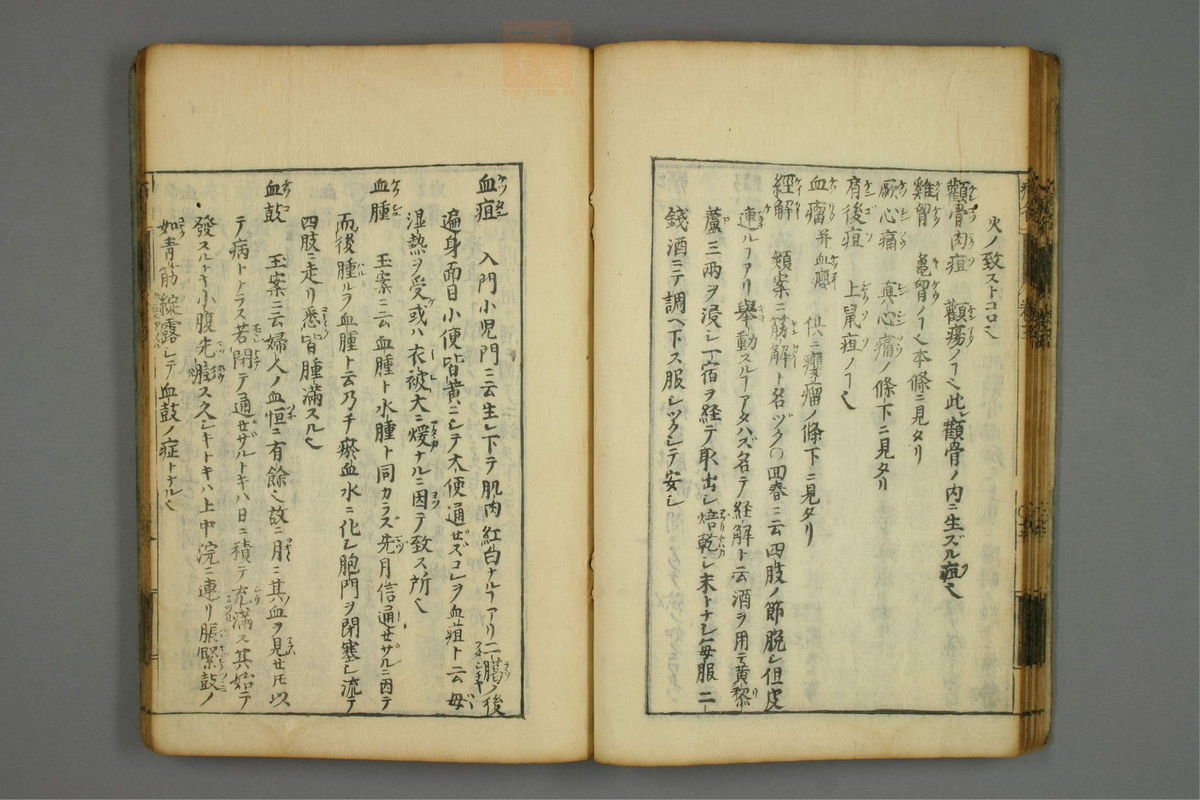 火ノ致ストコロ也
顴骨肉疽 顴瘍ノ𬼀也此レ顴骨ノ内ニ生ズル疽也
雞胃 亀胃ノ𬼀也本條ニ見タリ
厥心痛 真心痛ノ條下ニ見タリ
肩後疽 上鼠疽ノ𬼀也
血瘤 并血癭 俱ニ癭瘤ノ條下ニ見タリ
經解 類案ニ筋解ト名ヅク〇回春ニ云四肢ノ節脱シ但皮
連ル𬼀アリ舉動スル𬼀アタハズ名テ経解ト云酒ヲ用テ黄黎
蘆三両ヲ浸シ一宿ヲ経テ取出シ焙乾シ末トナシ毎服二
錢酒ニテ調ヘ下ス服シツクシテ安シ
血疸 入門小児門ニ云生レ下テ肌肉紅白ナル𬼀アリ二臈ノ後
遍身面目小便皆黄ニシテ大便通ゼズコレヲ血疸ト云母
湿熱ヲ受或ハ衣被大ニ煖ナルニ因テ致ス所也
血腫 玉案ニ云血腫ト水腫ト同カラズ先月信通ゼザルニ因テ
而後ニ腫ルヲ血腫ト云乃チ瘀血水ニ化シ胞門ヲ閉塞シ流テ
四肢ニ走リ悉皆腫満スル也
血鼓 玉案ニ云婦人ノ血恒ニ有餘也故ニ月ニ其血ヲ見セ𪜈以
テ病トトラス若閉テ通ゼザルトキハ日ニ積テ充満ス其始テ
發スルトキ小腹先脹ス久シキトキハ上中浣ニ連リ脹緊鼓ノ
如青筋綻露シテ血鼓ノ症トナル也